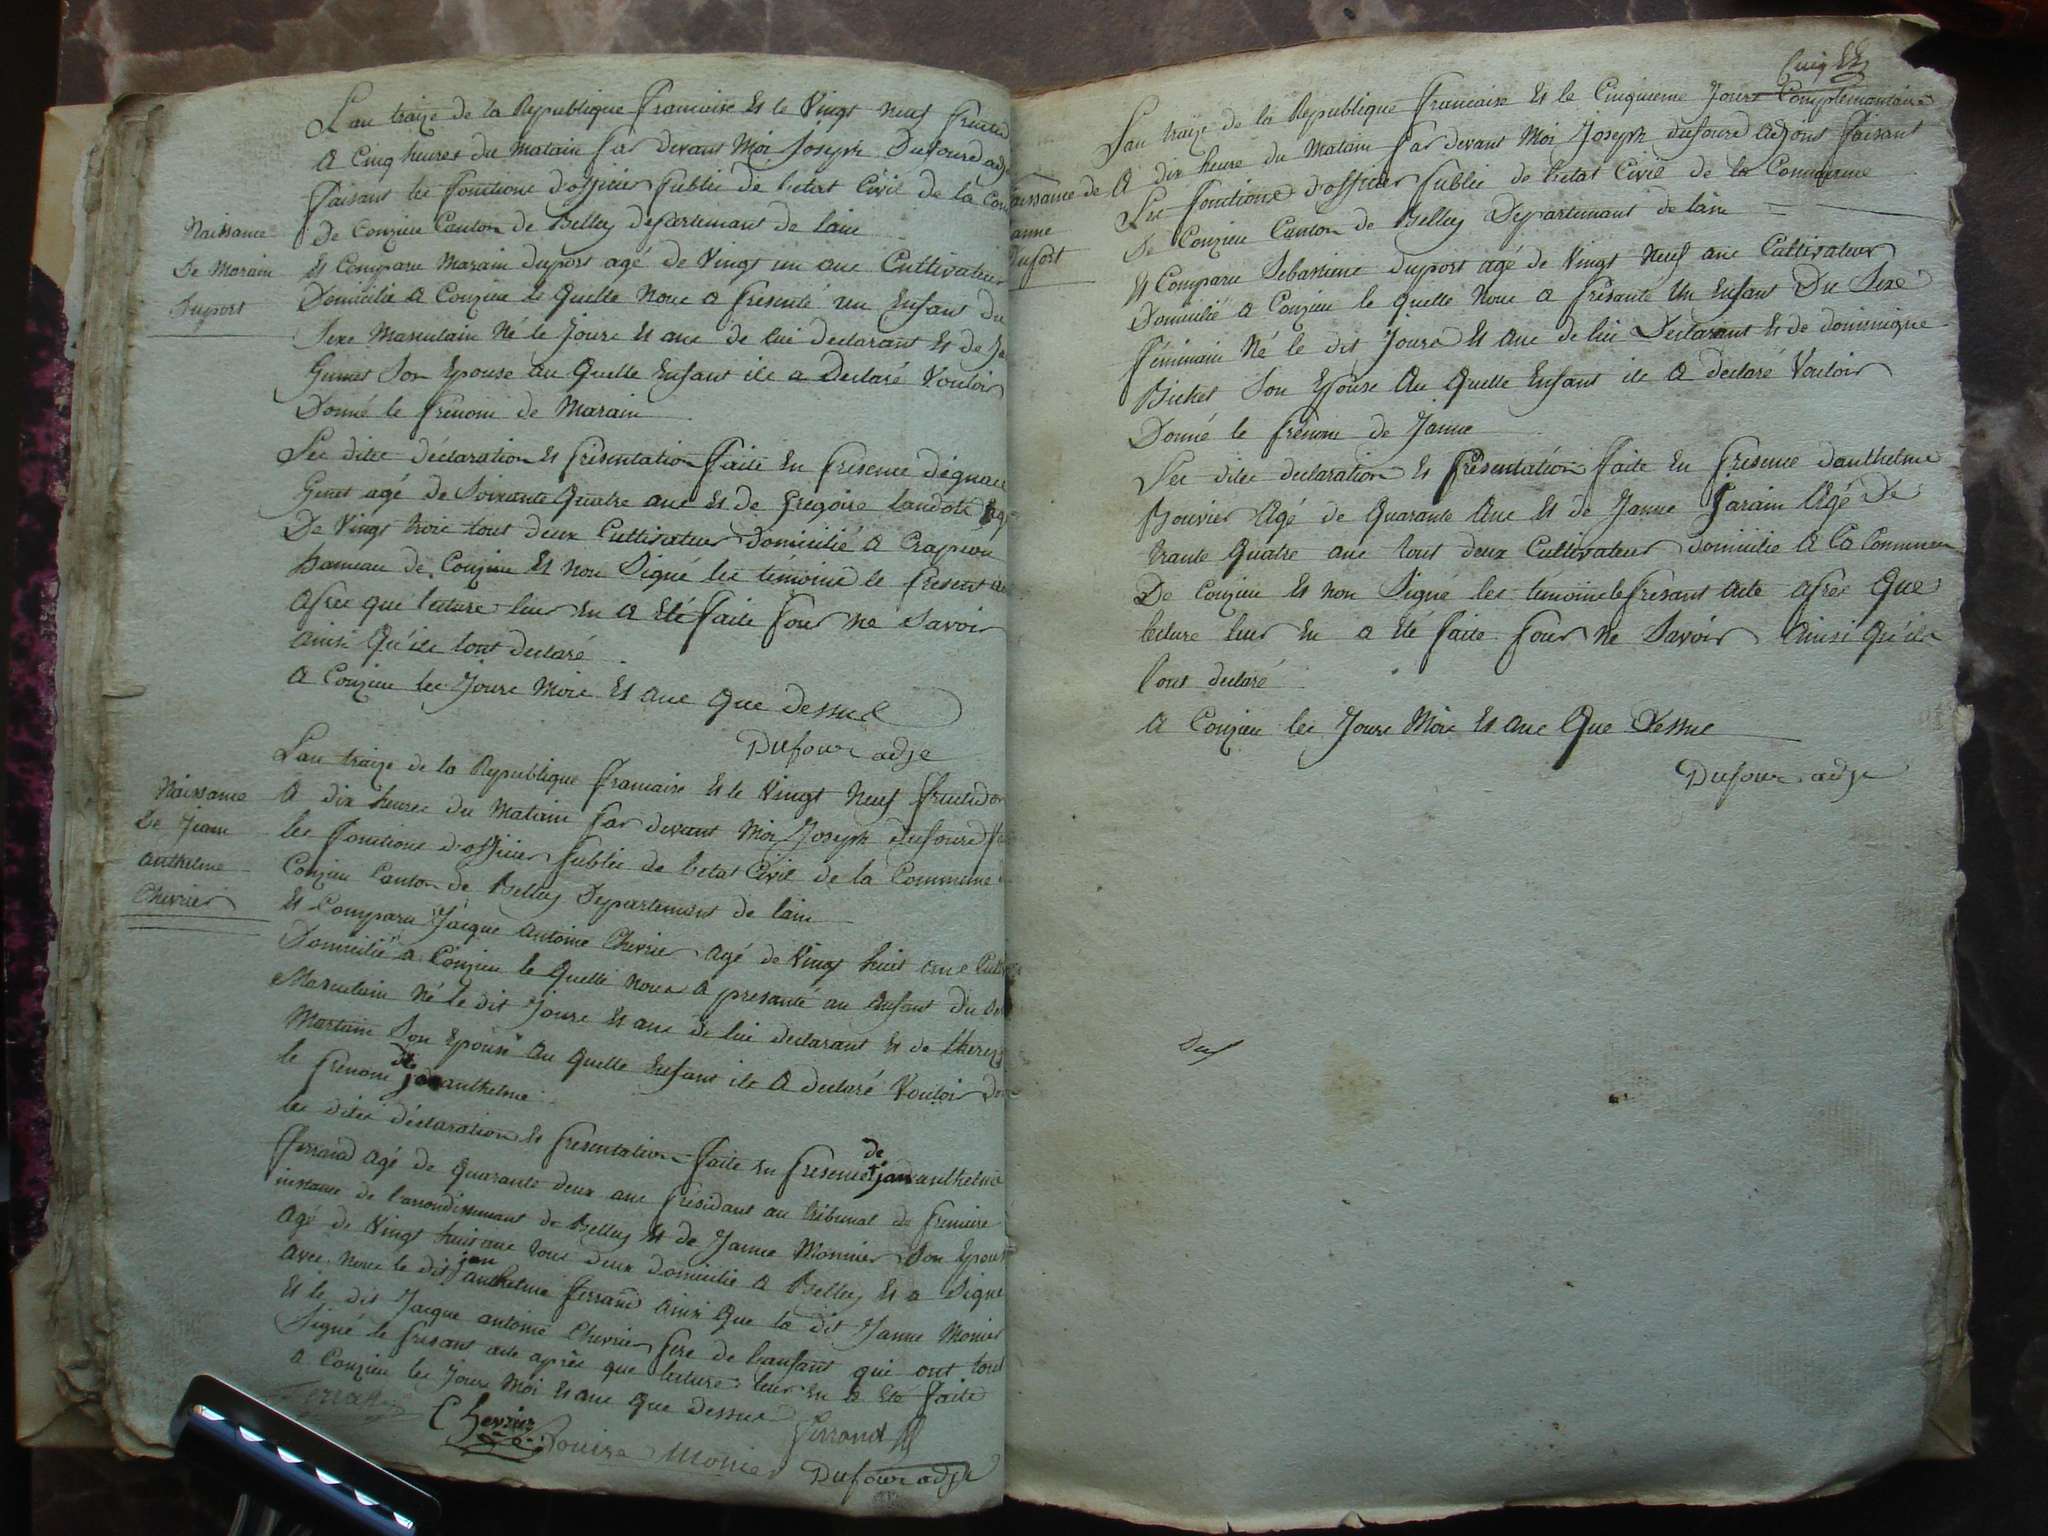 Lan traize de la Republique francaise Et le Vingt neuf fructid
A Cinq heures du Matain par devant Moi Joseph Dufoure adj
faisant les fonctions d'officier public de l'etat Civil de la Com
De Conzieu Canton de Belley departemant de lain
Naissance
De Marain
Duport
Et Comparu Marain duport agé de Vingt un ans Cultivateur
Domicilié a Conzieu le Quelle nous a presenté un Enfant du
Sexe Masculain Né le Joure Et ans de lui declarant Et de
Son Epouse au Quelle Enfant ile a Declaré Vouloir
Donné le prenom de Marain
Les dites déclaration Et presentation faite En presence
Genet agé de Soixante Quatre ans Et de Gregoire
De Vingt trois tout deux Cultivateur Domicilié a Crapeou
hameau de Conzieu Et non Signé les témoins le present
apres que lecture leur En a Eté faite pour ne Savoir
ainsi Qu'ile lont declaré
A Conzieu les Joure Mois Et ans que dessus
Dufour adje
Naissance
De Jean
anthelme
Chevrier
Lan traize de la Republique francaise Et le Vingt Neuf fructidor
A dix heures du Matain par devant Moi Joseph dufoure
les fonctions d'officier public de l'etat Civil de la Commune
Conzieu Canton de Belley Departemant de lain
Et Comparu Jacque Antoine Chevrier agé de Vingt huit ans
Domicilié a Conzieu le Quelle nous a presanté un Enfant du
Masculain Né le dit Joure Et ans de lui declarant Et de
Martain Son Epouse au Quelle Enfant ile a declaré Vouloir
le prenom de jan anthelme
les dites déclaration Et presentation faite En presence de jan anthelme
ferrand agé de Quarante deux ans président au tribunal de premiere
instance de l'arrondissemant de Belley Et de Janne Monnier Son Epouse
agé de Vingt huit ans tous deux domicilié a Belley Et a Signé
avec nous le dit jan anthelme ferrand ainsi que la dit Janne Monier
Et le dit Jacque antoine Chevrier pere de l'anfant qui ont tout
Signé le presant acte après que lecture leur En a Eté faite
a Conzieu les Joure Moi Et ans que dessus
Chevrier Louise Monier Ferrand
Dufour adje
Cinq
Naissance de
Janne
Duport
Lan traize de la Republique francaise Et le Cinquieme Joure Complemantaire
A dix heure du Matain par devant Moi Joseph dufoure adjoint faisant
Les fonctions d'officier public de l'etat Civil de la Commune
De Conzieu Canton de Belley Departemant de lain
Et Comparu Sebastiene duport agé de Vingt Neuf ans Cultivateur
Domicilié a Conzieu le quelle Nous a presanté Un Enfant Du Sexe
féminain Né le dit Joure Et ans de lui Declarant Et de dominique
Son Epouse Au Quelle Enfant ile a declaré Vouloir
Donné le prénom de Janne
Les dites declaration Et présentation faite En presence danthelme
Bouvier Agé de Quarante ans Et de Janne Agé De
trante Quatre ans tout deux Cultivateur domicilié A La Commun
De Conzieu Et non Signé les témoins le presant acte apres Que
lecture leur En a Eté faite pour Ne Savoir ainsi Qu'ile
l'ont declaré
A Conzieu les Joure Mois Et ans Que Dessus
Dufour adje
Duf